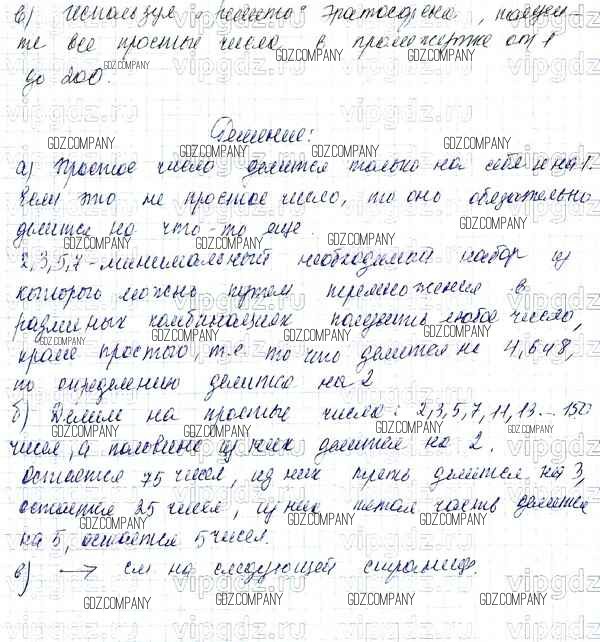 в) используя „решето“ Эратосфена, найди
те все простые числа в промежутке от 1
до 200.
Решение:
а) Простое число делится только на себя и на 1.
Если это не простое число, то оно обязательно
делится на что-то еще.
2,3,5,7 - минимальный необходимый набор из
которого можно путем перемножения в
различных комбинациях получить любое число,
кроме простого, т.е. то что делится на 4,6 и 8,
по определению делится на 2
б) Делим на простые числа: 2,3,5,7,11,13...150
чисел, а половина из них делится на 2.
Остается 75 чисел, из них треть делится на 3,
остается 25 чисел, из них пятая часть делится
на 5, остается 5 чисел.
в) → см на следующей странице.
GDZ.COMPANY
vipgdz.ru